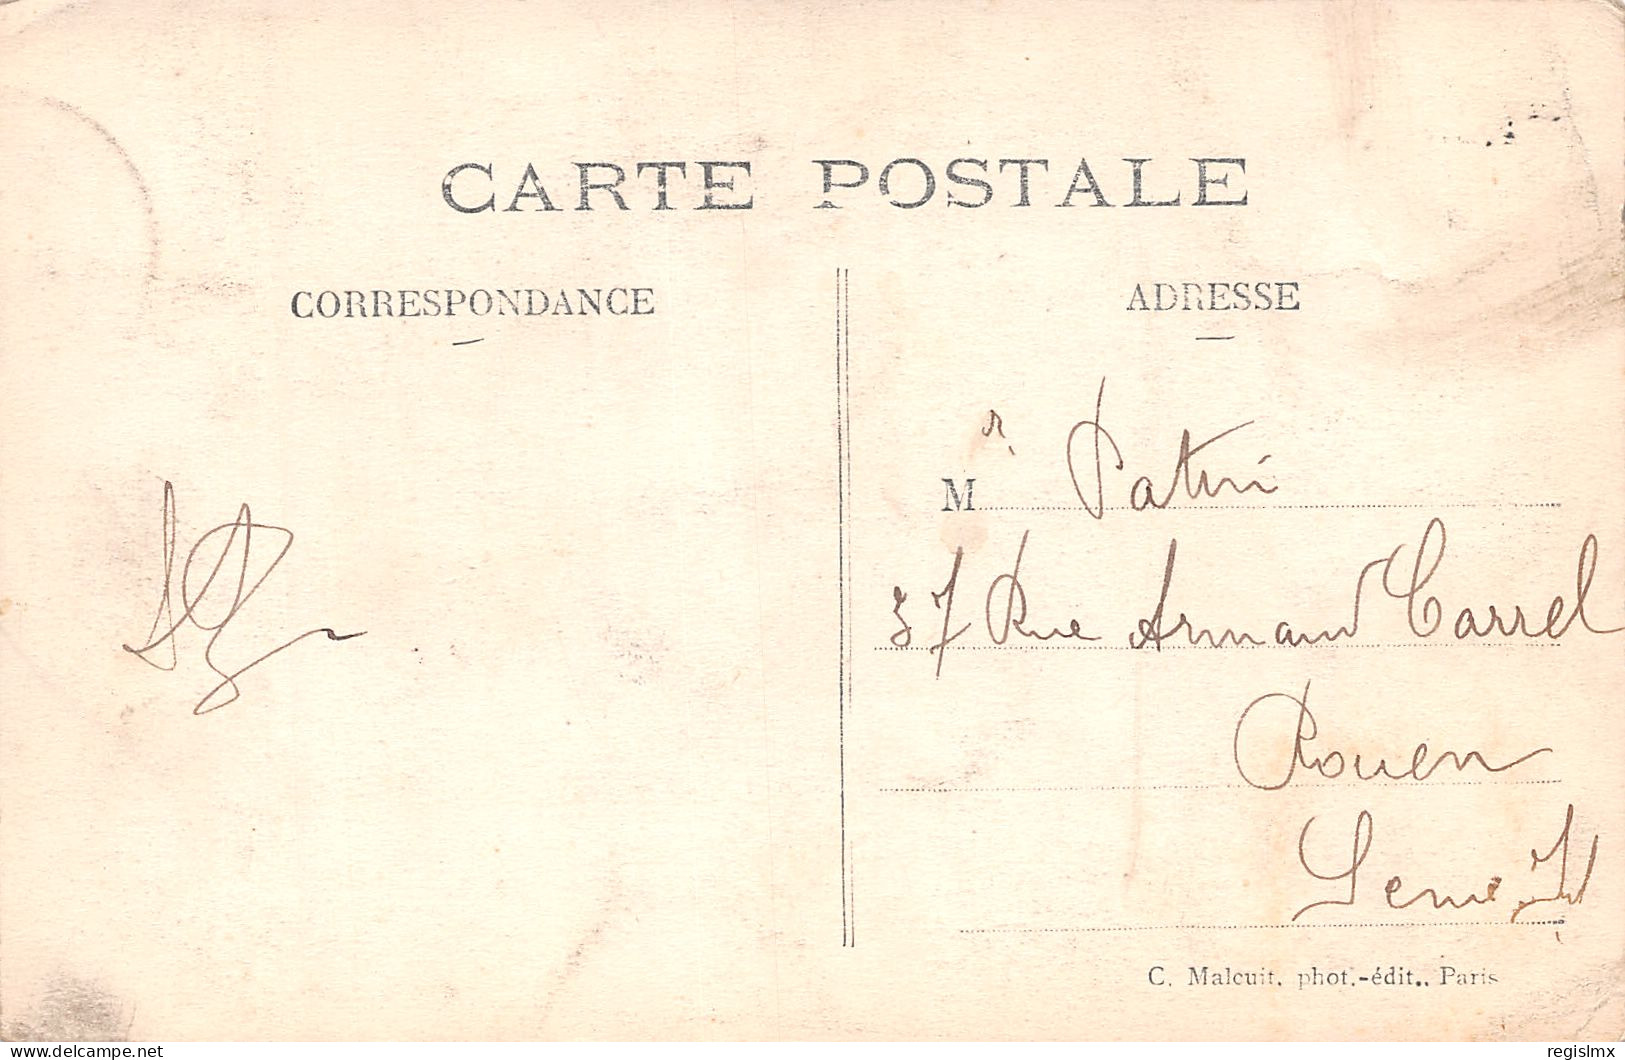 CARTE POSTALE
CORRESPONDANCE
ADRESSE
M r. Patri
37 Rue Armand Carrel
Rouen
Seine Inf
C. Malcuit, phot.-édit., Paris
delcampe.net
regislmx